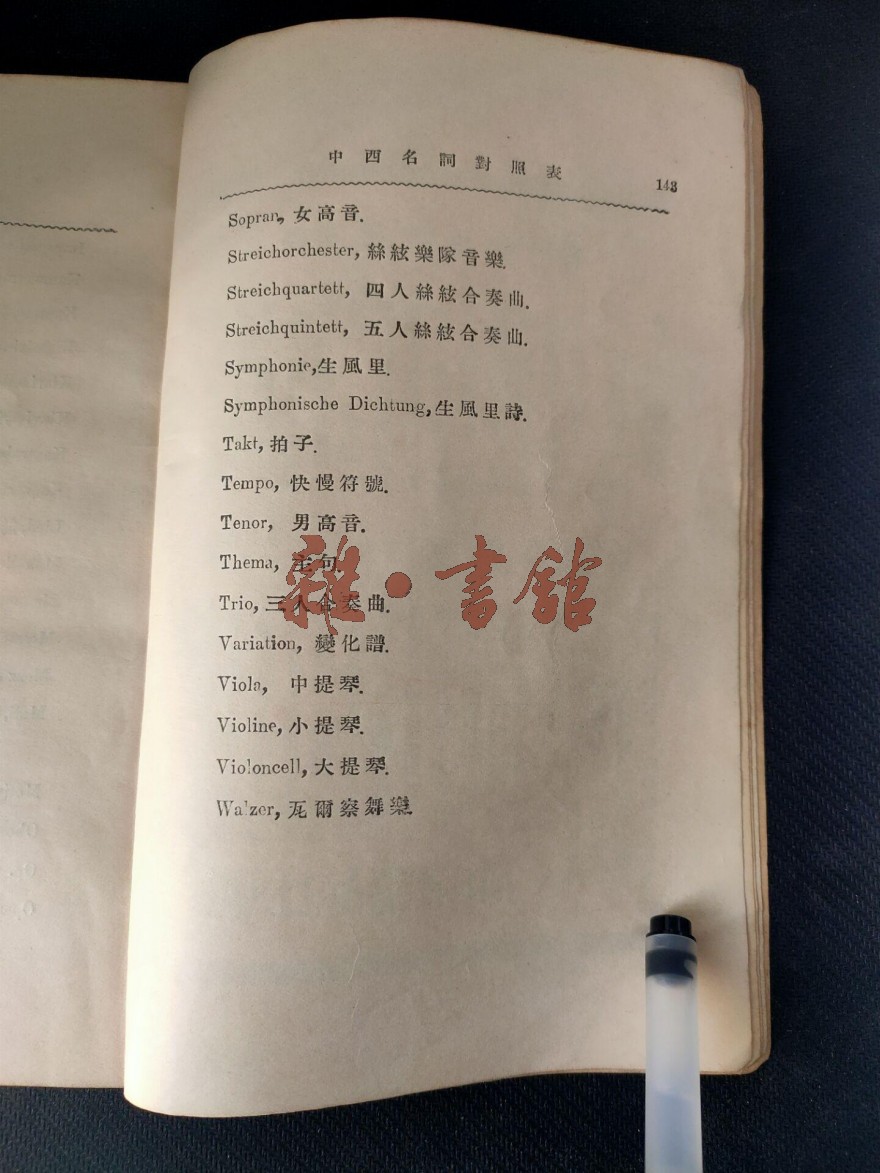 中西名詞對照表 143
Sopran, 女高音.
Streichorchester, 絲絃樂隊音樂.
Streichquartett, 四人絲絃合奏曲.
Streichquintett, 五人絲絃合奏曲.
Symphonie,生風里.
Symphonische Dichtung,生風里詩.
Takt, 拍子.
Tempo, 快慢符號.
Tenor, 男高音.
Thema, 主句.
Trio, 三人合奏曲.
Variation, 變化譜.
Viola, 中提琴.
Violine, 小提琴.
Violoncell, 大提琴.
Walzer, 瓦爾察舞樂.
雜·書館